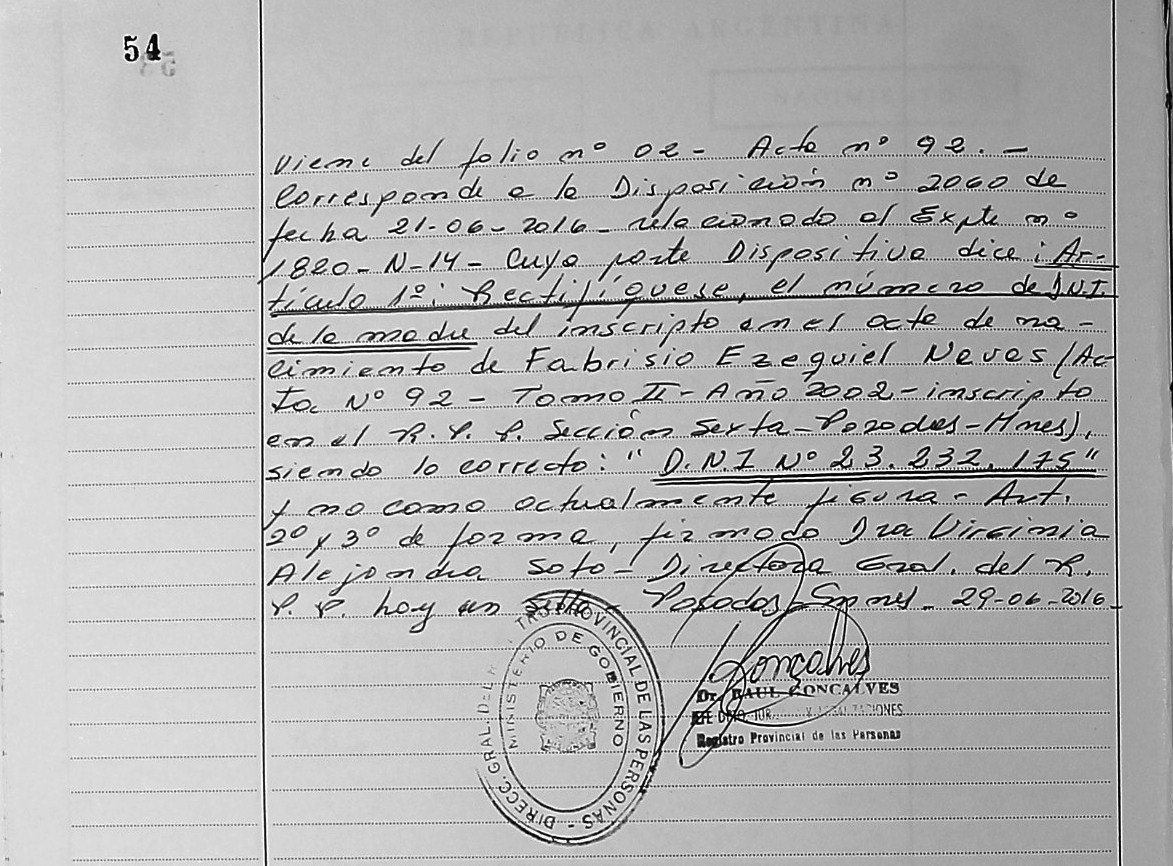 54
REPUBLICA ARGENTINA
NACIMIENTO
Viene del folio nº 02 - Acta nº 92. -
Corresponde a la Disposición nº 2060 de
fecha 21-06-2016 - relacionado al Expte nº
1820 - N-14 - Cuya parte Dispositiva dice: Ar-
tículo 1º: Rectifíquese, el número de D.N.I
de la madre del inscripto en el acta de na-
cimiento de Fabrisio Ezequiel Neves (Ac-
ta Nº 92 - Tomo II - Año 2002 - inscripto
en el R. P. P. Sección Sexta - Posadas - Mnes),
siendo lo correcto: " D.N.I Nº 23.232.175 "
y no como actualmente figura - Art.
2º y 3º de forma, firmado Dra Virginia
Alejandra Soto - Directora Gral. del R.
P. P. hoy en Posadas, Mnes - 29-06-2016
DIRECC. GRAL. DEL PROVINCIAL DE LAS PERSONAS -
MINISTERIO DE GOBIERNO
Gonçalves
Dr. RAUL GONCALVES
JEFE DPTO. JUR. Y LEGALIZACIONES
Registro Provincial de las Personas